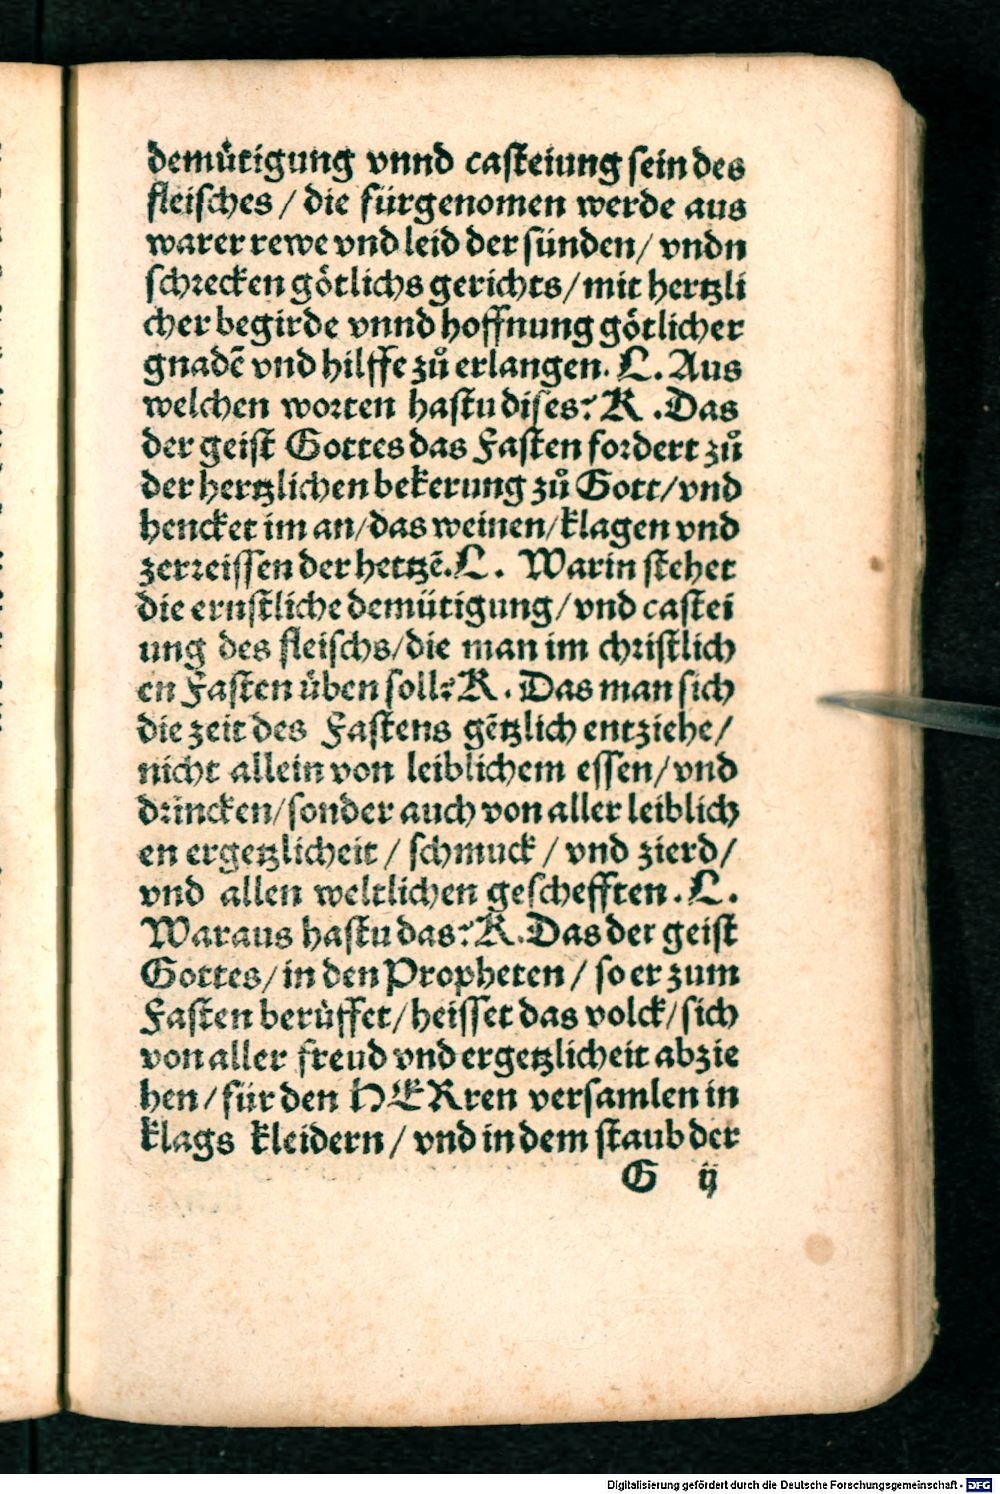 demuͤtigung vnnd casteiung sein des
fleisches / die fürgenomen werde aus
warer rewe vnd leid der sünden / vndn
schrecken goͤtlichs gerichts / mit hertzli
cher begirde vnnd hoffnung goͤtlicher
gnadē vnd hilffe zuͦ erlangen. L. Aus
welchen worten hastu dises? K. Das
der geist Gottes das Fasten fordert zuͦ
der hertzlichen bekerung zuͦ Gott / vnd
hencket im an / das weinen / klagen vnd
zerreissen der hertzē. L. Warin stehet
die ernstliche demütigung / vnd castei
ung des fleischs / die man im christlich
en Fasten üben soll? K. Das man sich
die zeit des Fastens gētzlich entziehe /
nicht allein von leiblichem essen / vnd
drincken / sonder auch von aller leiblich
en ergetzlicheit / schmuck / vnd zierd /
vnd allen weltlichen geschefften. L.
Waraus hastu das? K. Das der geist
Gottes / in den Propheten / so er zum
Fasten beruͤffet / heisset das volck / sich
von aller freud vnd ergetzlicheit abzie
hen / für den HERren versamlen in
klags kleidern / vnd in dem staub der
G ij
Digitalisierung gefördert durch die Deutsche Forschungsgemeinschaft - DFG